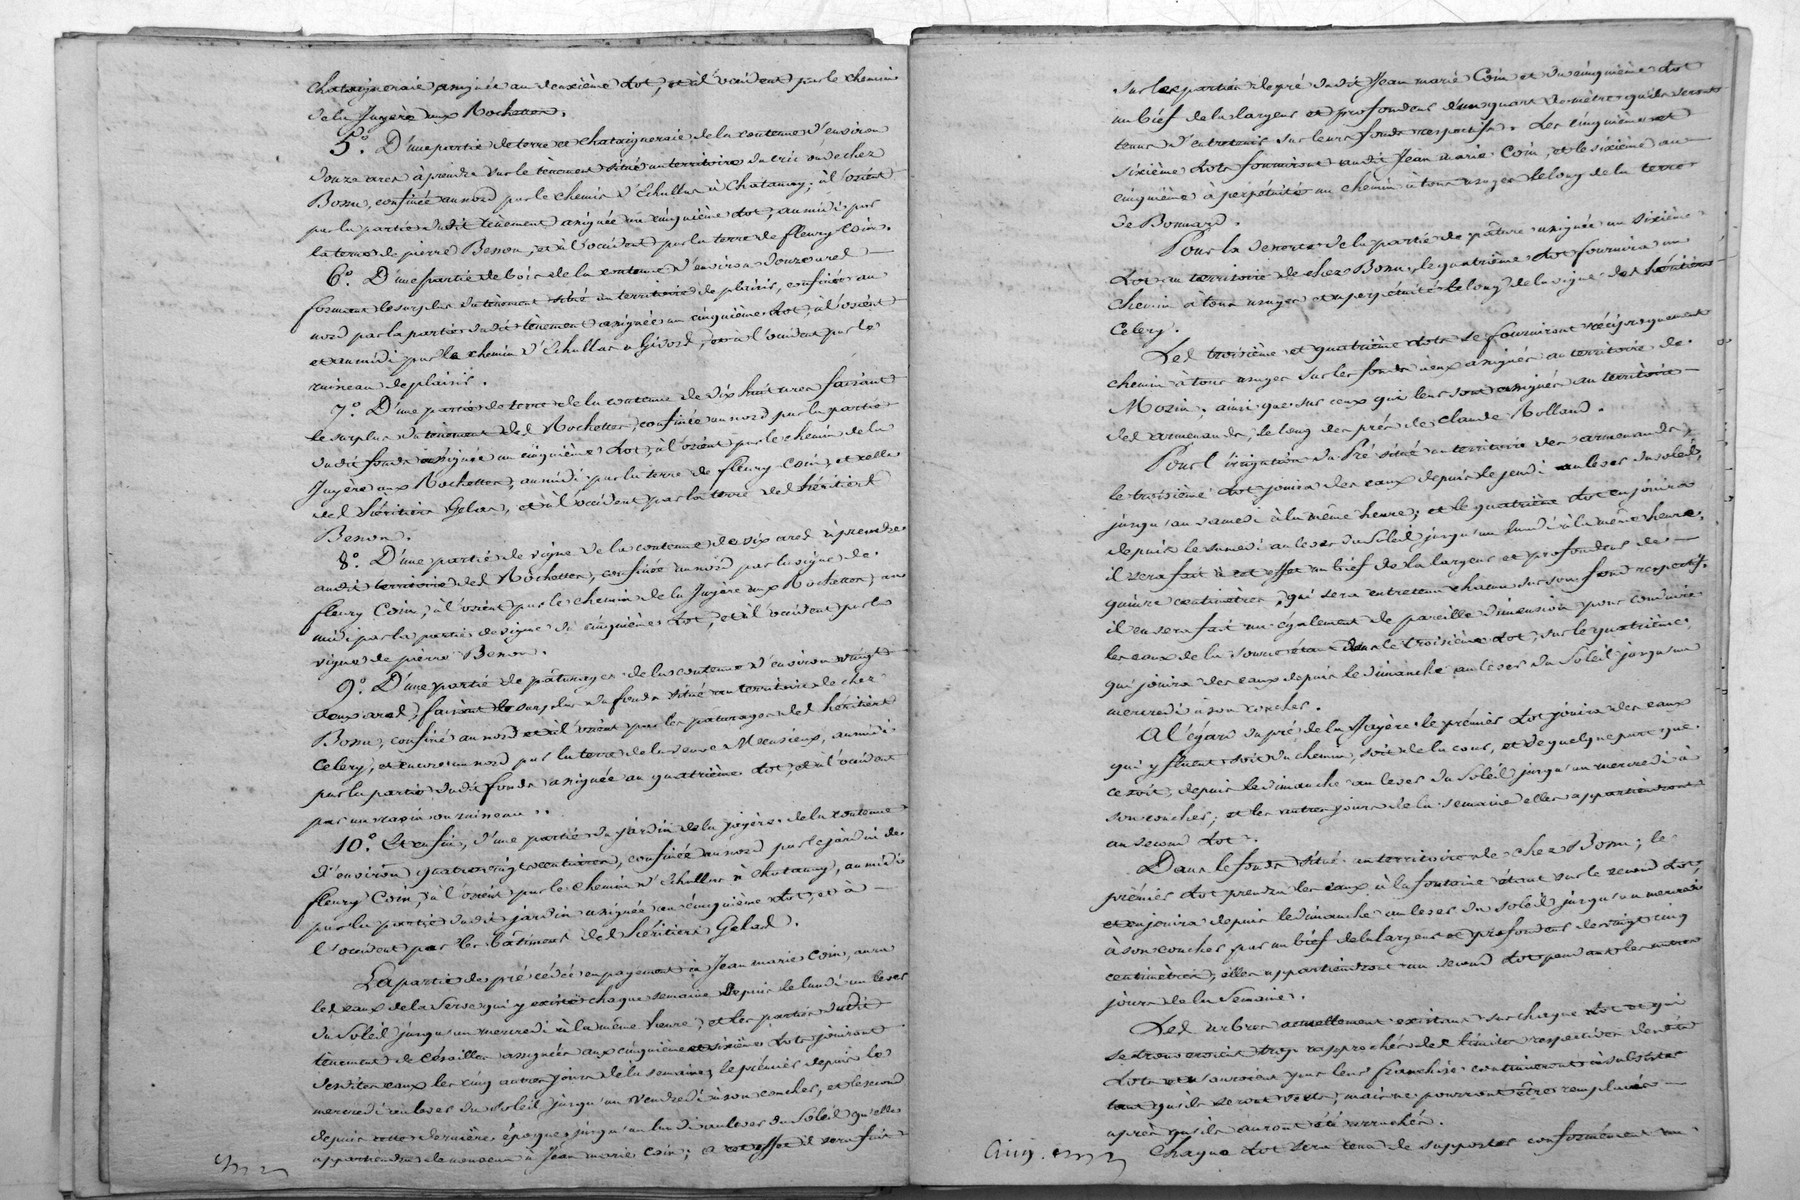 chataigneraie assignée au deuxième Lot, et à l'occident par le chemin
de la Juyère aux Rochettes.
5.° D'une partie de terre et chataigneraie de la contenue d'environ
douze ares à prendre sur le tènement situé au territoire du cric ou de chez
Bonu, confinée au nord par le chemin d'Echallas à Chatanay; à l'orient
par la partie dudit tènement assignée au cinquième Lot, au midi par
la terre de pierre Besson, et à l'occident par la terre de fleury Coin.
6.° D'une partie de bois de la contenue d'environ douze ares
formant le surplus du tènement situé au territoire de plaisis, confinée au
nord par la partie dudit tènement assignée au cinquième Lot, à l'orient
et au midi par le chemin d'Echallas à Givord, et à l'occident par le
ruisseau de plaisis.
7.° D'une partie de terre de la contenue de dix huit ares faisant
le surplus du tènement des Rochettes, confinée au nord par la partie
dudit fonds assignée au cinquième Lot, à l'orient par le chemin de la
Juyère aux Rochettes, au midi par la terre de fleury Coin, et celle
des héritiers Gelas, et à l'occident par la terre des héritiers
Besson.
8.° D'une partie de vigne de la contenue de six ares à prendre
audit territoire des Rochettes, confinée au nord par la vigne de
fleury Coin, à l'orient par le chemin de la Juyère aux Rochettes, au
midi par la partie de vigne du cinquième Lot, et à l'occident par la
vigne de pierre Besson.
9.° D'une partie de pâturages de la contenue d'environ vingt
deux ares, faisant le surplus du fonds situé au territoire de chez
Bonu, confiné au nord et à l'orient par les pâturages des héritiers
Celery, et encore au nord par la terre de la veuve Meusieux, au midi
par la partie dudit fonds assignée au quatrième Lot, et à l'occident
par un ravin ou ruisseau.
10.° Et enfin, d'une partie du jardin de la juyère de la contenue
d'environ quatre vingts centiares, confinée au nord par le jardin de
fleury Coin, à l'orient par le chemin d'Echallas à Chatanay, au midi
par la partie dudit jardin assignée au cinquième Lot, et à
l'occident par les bâtiments des héritiers Gelas.
La partie de pré cédée en payement à Jean marie Coin, aura
les eaux de la Serve qui y existe chaque semaine depuis le lundi au lever
du Soleil jusqu'au mercredi à la même heure, et les parties dudit
tènement de assignées aux cinquième et sixième Lots jouiront
desdites eaux les cinq autres jours de la semaine; le premier depuis le
mercredi au lever du soleil jusqu'au vendredi à son coucher, et le second
depuis cette dernière époque jusqu'au lundi au lever du Soleil qu'elles
appartiendront de nouveau à Jean marie Coin; à cet effet il sera fait
sur les parties de pré dudit Jean marie Coin et du cinquième Lot
un bief de la largeur et profondeur d'un quart de mètre qu'ils seront
tenus d'entretenir sur leurs fonds respectifs. Les cinquième et
sixième Lots fourniront audit Jean marie Coin, et le sixième au
cinquième à perpétuité un chemin à tous usages le long de la terre
de Bonnard.
Pour la desserte de la partie de pâture assignée au sixième
Lot au territoire de chez Bonu, le quatrième Lot fournira un
chemin à tous usages et à perpétuité le long de la vigne des héritiers
Celery.
Les troisième et quatrième Lots se fourniront réciproquement
chemin à tous usages sur les fonds à eux assignés au territoire de
Mozin, ainsi que sur ceux qui leur sont assignés au territoire
des armenauds, le long des prés de claude Rolland.
Pour l'irrigation du Pré situé au territoire des armenauds,
le troisième Lot jouira des eaux depuis le jeudi au lever du soleil,
jusqu'au samedi à la même heure; et le quatrième Lot en jouira
depuis le samedi au lever du Soleil jusqu'au lundi à la même heure,
il sera fait à cet effet un bief de la largeur et profondeur de
quinze centimètres, qui sera entretenu chacun sur son fond respectif.
il en sera fait un également de pareille dimension pour conduire
les eaux de la source étant dans le troisième Lot, sur le quatrième,
qui jouira des eaux depuis le dimanche au lever du Soleil jusqu'au
mercredi à son coucher.
A l'égard du pré de la Juyère le premier Lot jouira des eaux
qui y fluent soit du chemin, soit de la cour, et de quelque part que
ce soit, depuis le dimanche au lever du Soleil jusqu'au mercredi à
son coucher; et les autres jours de la semaine elles appartiendront
au second Lot.
Dans le fonds situé au territoire de chez Bonu; le
premier Lot prendra les eaux à la fontaine étant sur le second Lot,
et en jouira depuis le dimanche au lever du soleil jusqu'au mercredi
à son coucher par un bief de la largeur et profondeur de vingt cinq
centimètres, elles appartiendront au second Lot pendant les autres
jours de la Semaine.
Les arbres actuellement existans sur chaque Lot et qui
se trouveroient trop rapprochés des limites respectives desdits
Lots et n'auroient pas leur franchise continueront à subsister
tant qu'ils seront verts, mais ne pourront être remplacés
après qu'ils auront été arrachés.
Chaque Lot sera tenu de supporter conformément au